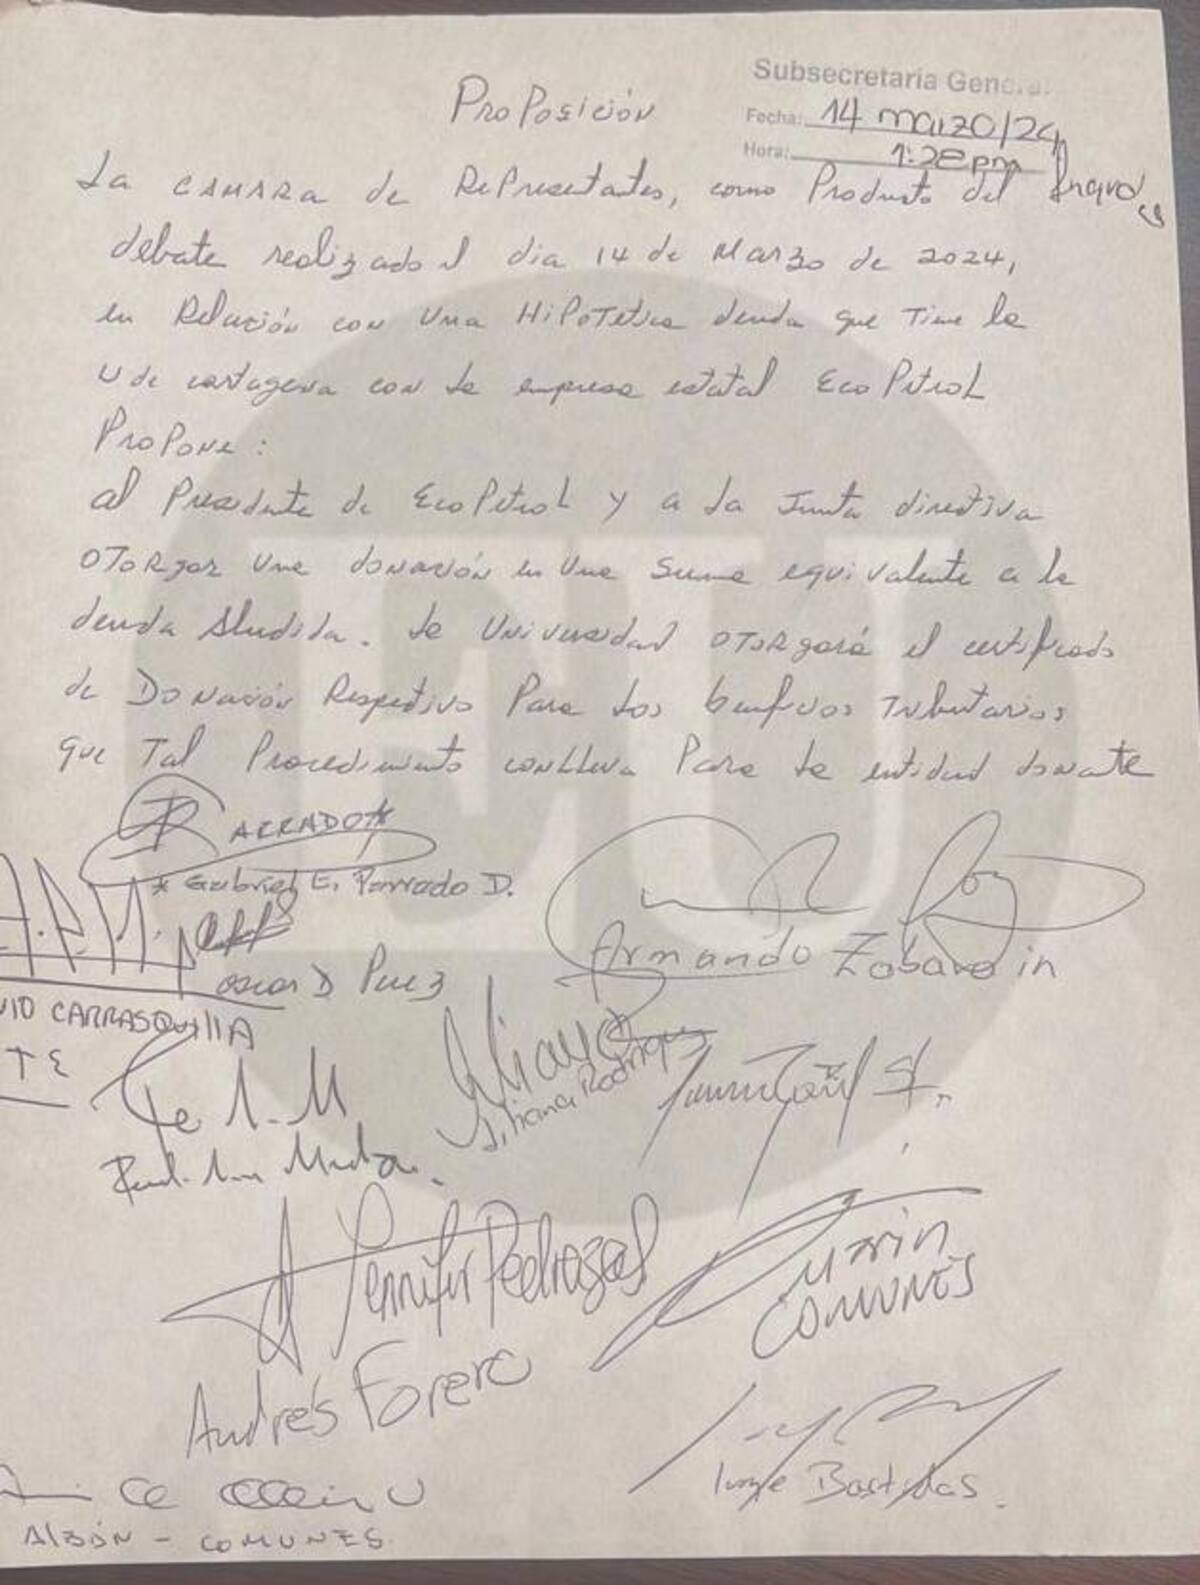 Subsecretaria General
Fecha: 14 marzo/24
Hora: 1:28pm
ProPosición
La CAMARA de RePresetates, como Producto del
debate realizado el dia 14 de Marzo de 2024,
en Relación con una HiPoTetica deuda que Tiene la
U de cartagena con la empresa estatal EcoPetroL
ProPone:
al Presidente de EcoPetroL y a La Junta directiva
OTORgar una donación en una suma equivalente a la
deuda Aludida. La Universidad OTORgará el certificado
de Donación Respectivo Para Los beneficios Tributarios
que Tal Procedimiento conLLeva Para la entidad donate
PARRADO*
* Gabriel E. Parrado D.
Armando Zabarain
Oscar D Perez
CARRASQUILLA
TE
Liliana Rodriguez
Jennifer Pedraza
Marin
COMUNES
Andrés Forero
Jorge Bastidas.
EU
Albán - COMUNES